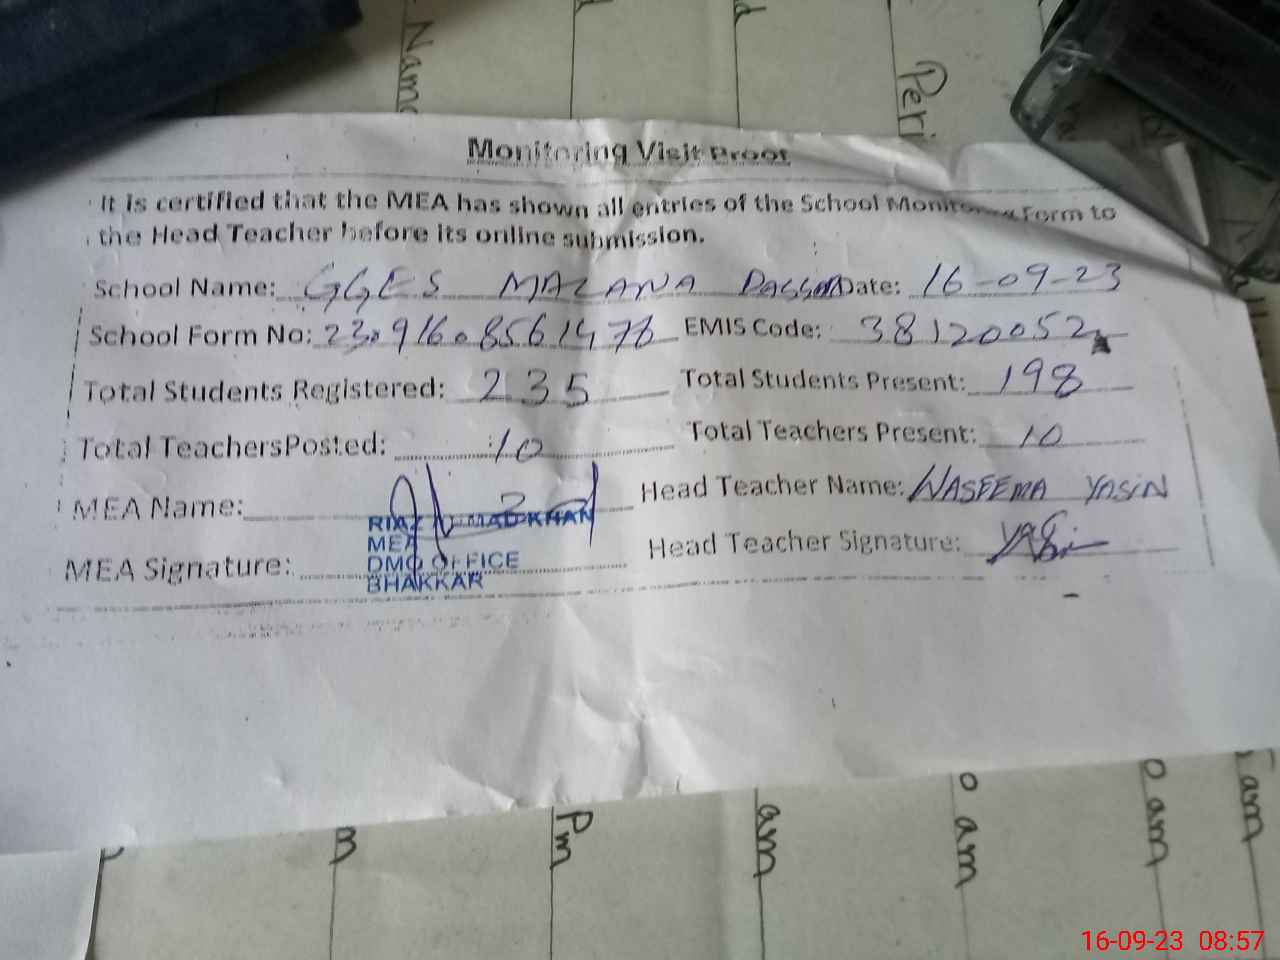 Name
d
d
Peri
Monitoring Visit Proof
It is certified that the MEA has shown all entries of the School Monitoring Form to
the Head Teacher before its online submission.
School Name: GGES MALANA Date: 16-09-23
School Form No: EMIS Code: 38120052
Total Students Registered: 235 Total Students Present: 198
Total TeachersPosted: 10 Total Teachers Present: 10
MEA Name: Head Teacher Name: NASEEMA YASIN
RIAZ AHMAD KHAN
MEA
MEA Signature: Head Teacher Signature:
DMO OFFICE
BHAKKAR
B
Pm
am
o am
o am
am
16-09-23 08:57